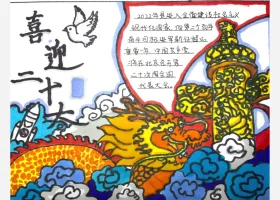 喜迎
二十大
2022年是进入全面建设社会主义
现代化国家，向第二个百年
奋斗目标进军新征程的
重要一年，中国共产党
将在北京召开第
二十次全国
代表大会。